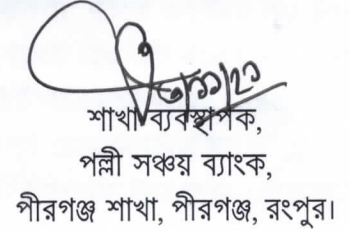 শাখা ব্যবস্থাপক,
পল্লী সঞ্চয় ব্যাংক,
পীরগঞ্জ শাখা, পীরগঞ্জ, রংপুর।